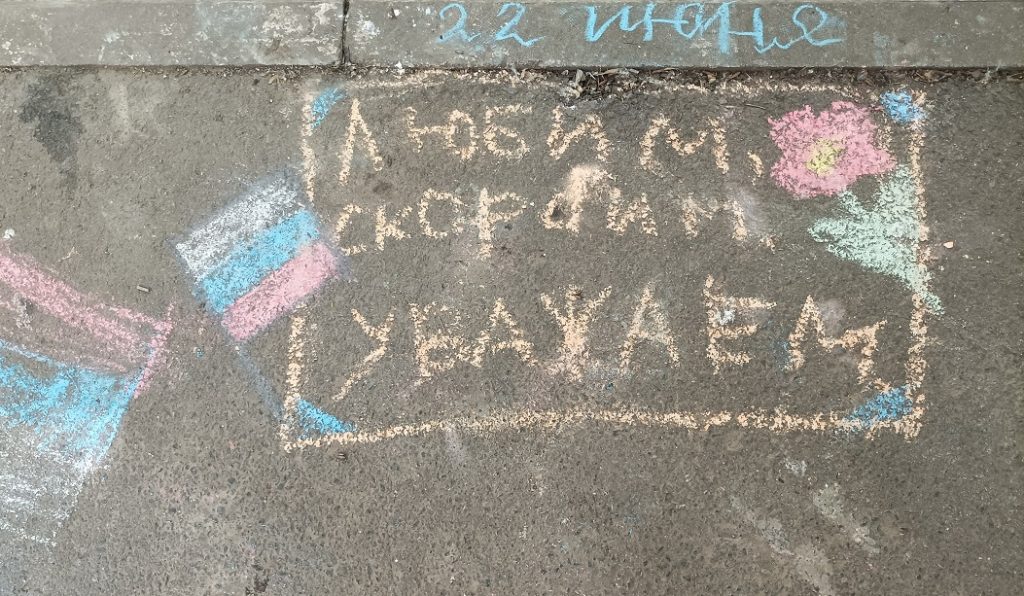 22 июня
ЛЮБИМ,
СКОРБИМ,
УВАЖАЕМ